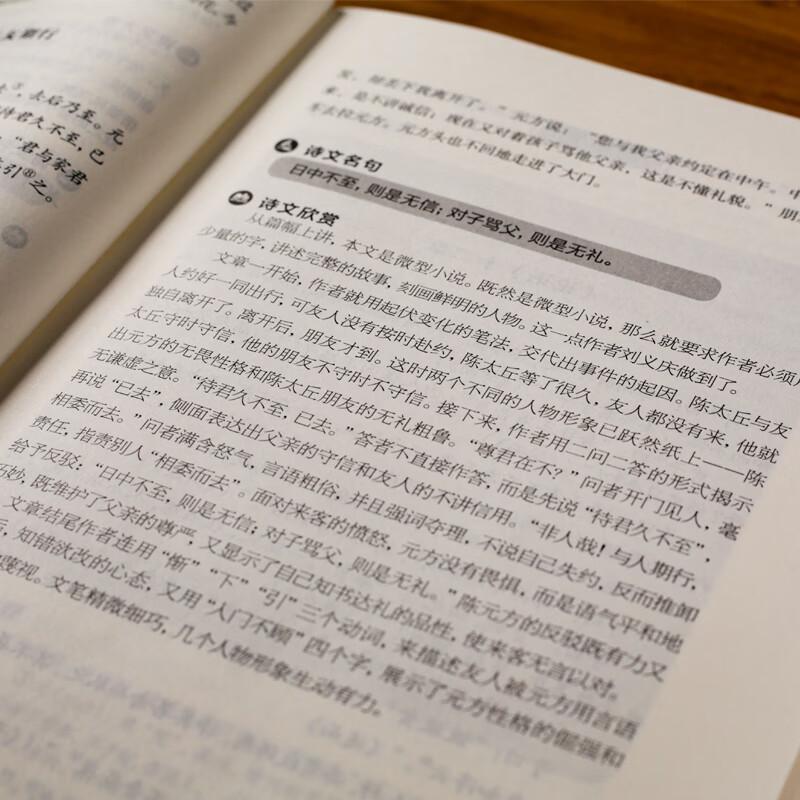 去后乃至。元
待君久不至，已
"君与家君
引⑧之。
来，是不讲诚信；现在又对着孩子骂他父亲，这是不懂礼貌。"朋
车去拉元方。元方头也不回地走进了大门。
诗文名句
日中不至，则是无信；对子骂父，则是无礼。
诗文欣赏
从篇幅上讲，本文是微型小说。既然是微型小说，那么就要求作者必须用
少量的字，讲述完整的故事，刻画鲜明的人物。这一点作者刘义庆做到了。
文章一开始，作者就用起伏变化的笔法，交代出事件的起因。陈太丘与友
人约好一同出行，可友人没有按时赴约，陈太丘等了很久，友人都没有来，他就
独自离开了。离开后，朋友才到。这时两个不同的人物形象已跃然纸上——陈
太丘守时守信，他的朋友不守时不守信。接下来，作者用二问二答的形式揭示
出元方的无畏性格和陈太丘朋友的无礼粗鲁。"尊君在不？"问者开门见人，毫
无谦虚之意。"待君久不至，已去。"答者不直接作答，而是先说"待君久不至"，
再说"已去"，侧面表达出父亲的守信和友人的不讲信用。"非人哉！与人期行，
相委而去。"问者满含怒气，言语粗俗，并且强词夺理，不说自己失约，反而推卸
责任，指责别人"相委而去"。面对来客的愤怒，元方没有畏惧，而是语气平和地
给予反驳："日中不至，则是无信；对子骂父，则是无礼。"陈元方的反驳既有力又
巧妙，既维护了父亲的尊严，又显示了自己知书达礼的品性，使来客无言以对。
文章结尾作者连用"惭""下""引"三个动词，来描述友人被元方用言语
后，知错欲改的心态，又用"入门不顾"四个字，展示了元方性格的倔强和
蔑视。文笔精微细巧，几个人物形象生动有力。